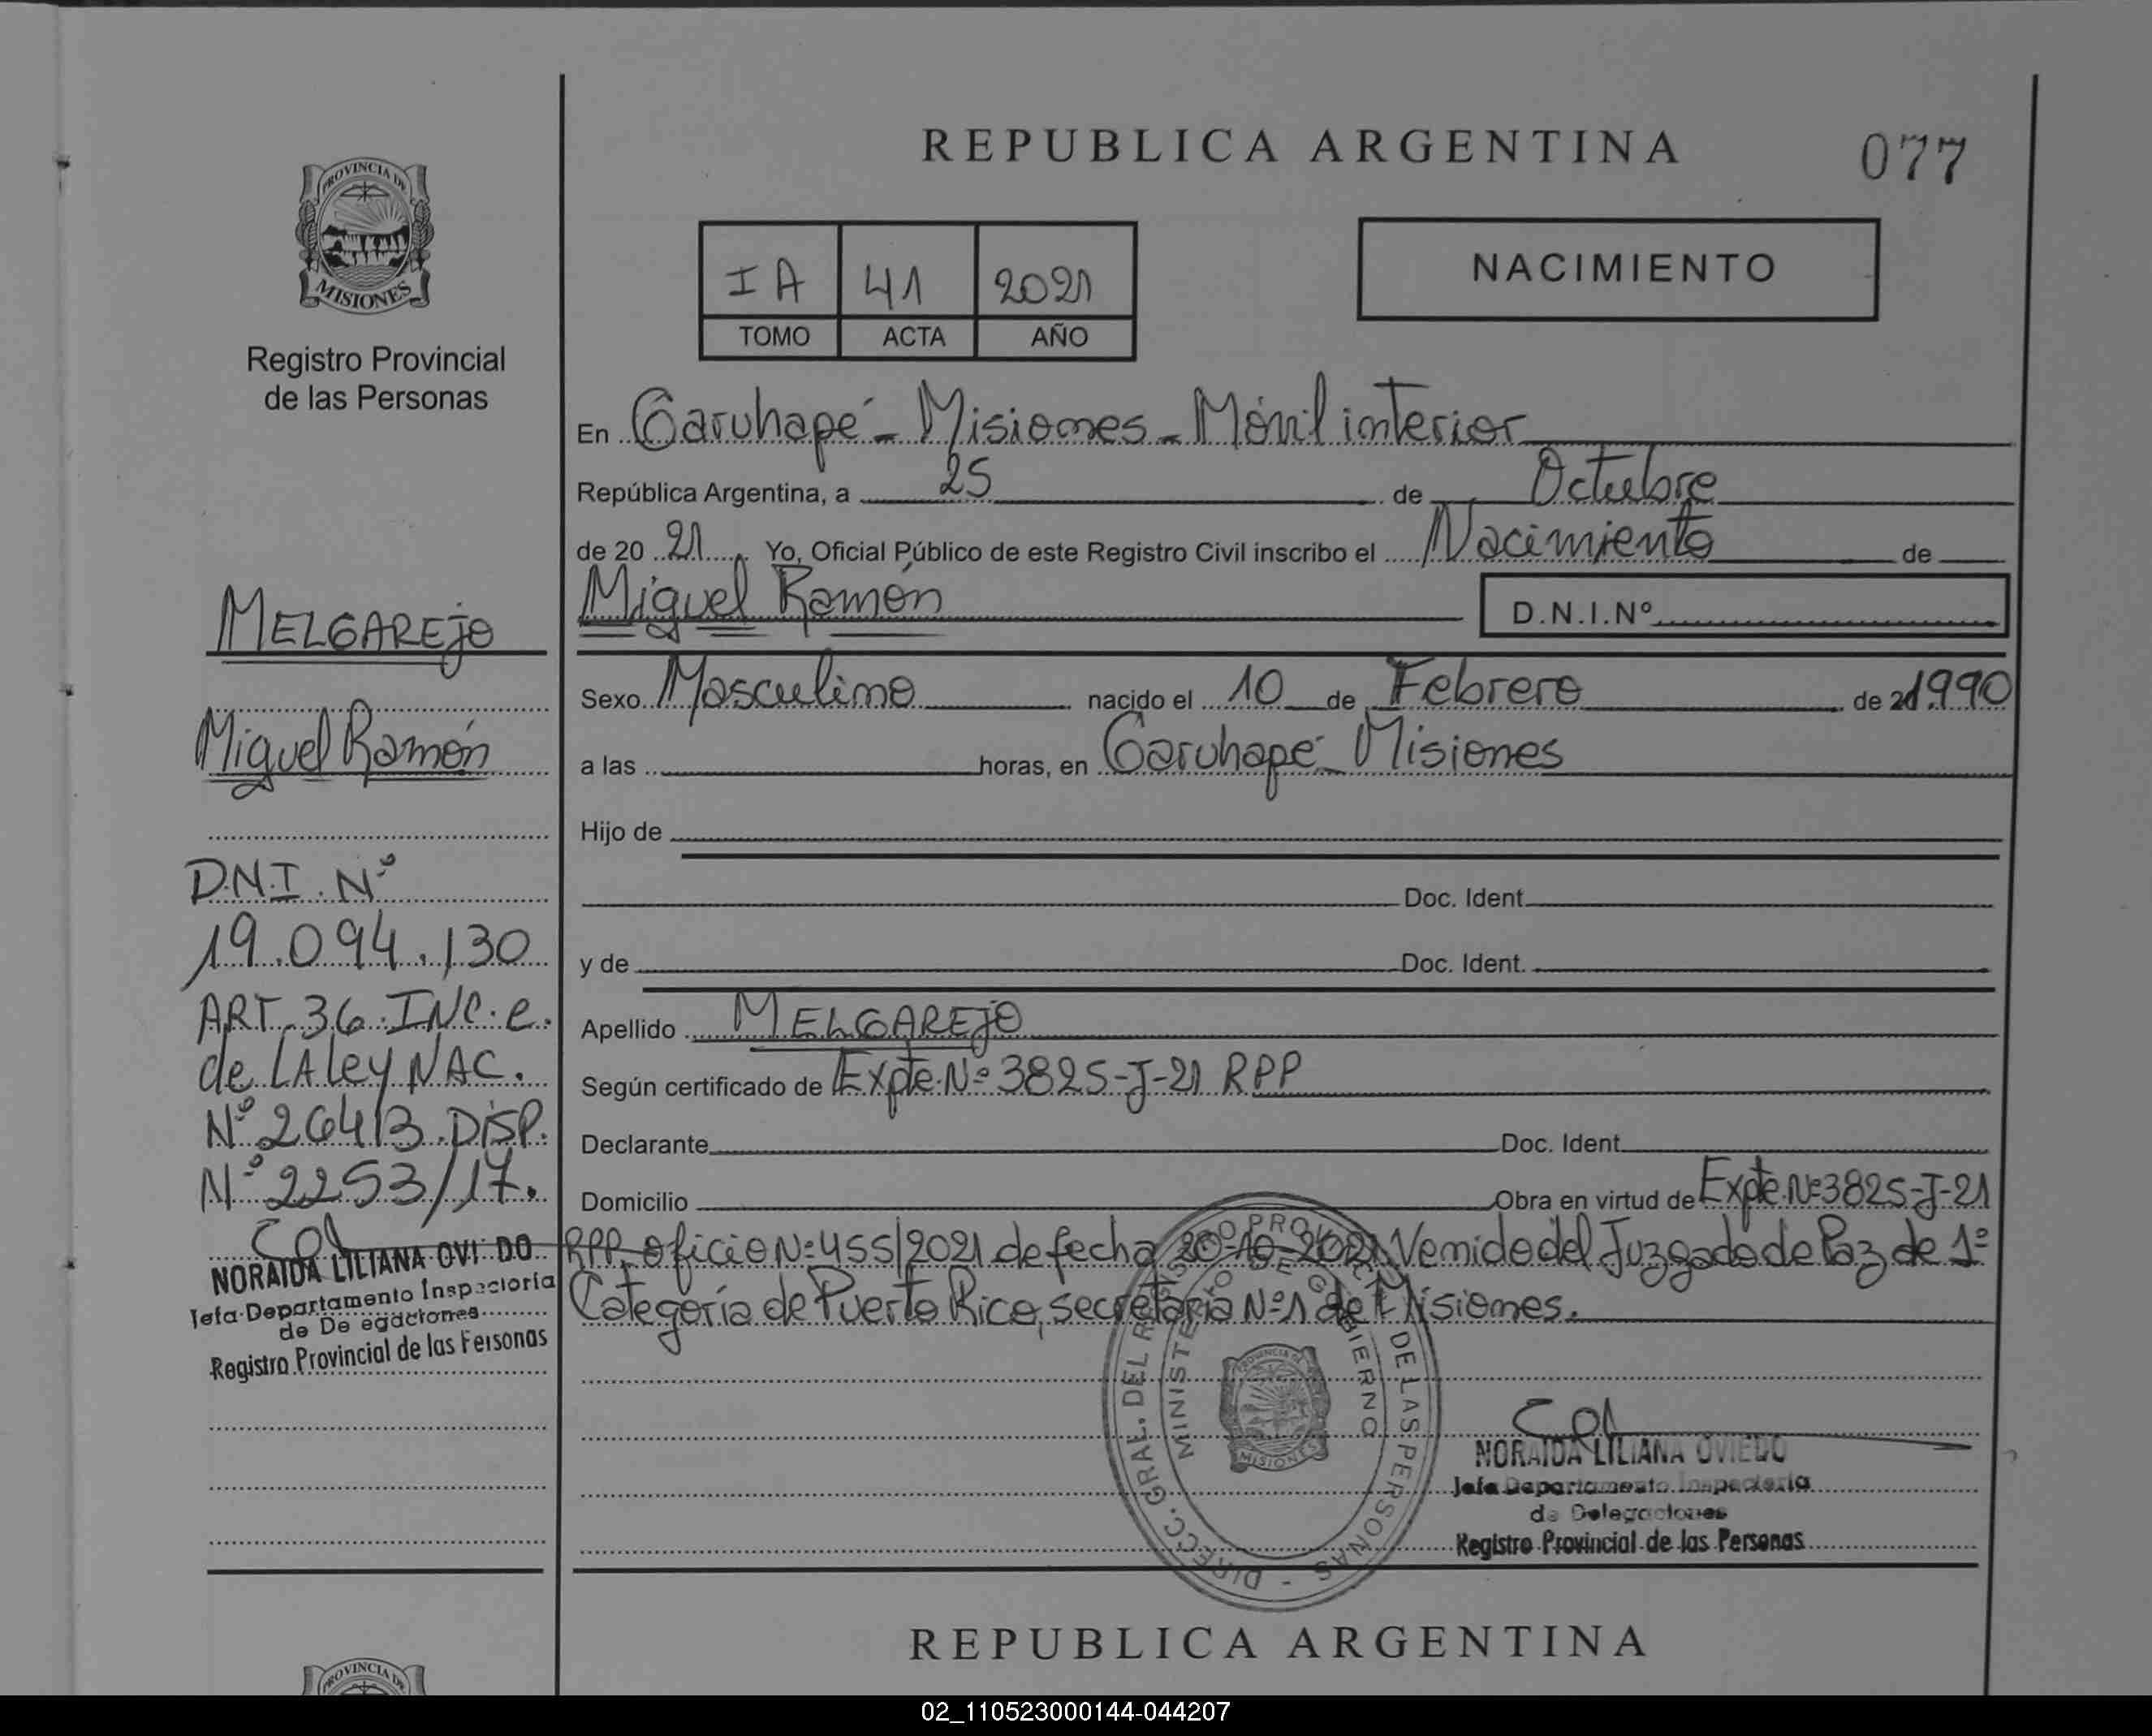 PROVINCIA DE
MISIONES
Registro Provincial
de las Personas
MELGAREJO
Miguel Ramón
D.N.I. Nº
19.094.130
ART. 36 INC. e.
de LA ley NAC.
Nº 26413. DISP.
Nº 2253/17.
NORAIDA LILIANA OVI DO
Jefa Departamento Inspectoria
de De egaciones
Registro Provincial de las Personas
REPUBLICA ARGENTINA
077
IA 41 2021
TOMO ACTA AÑO
NACIMIENTO
En Garuhapé - Misiones - Móvil interior
República Argentina, a 25 de Octubre
de 20 21 Yo, Oficial Público de este Registro Civil inscribo el Nacimiento de
Miguel Ramón D.N.I.Nº
Sexo Masculino nacido el 10 de Febrero de 1990
a las horas, en Garuhapé - Misiones
Hijo de
Doc. Ident.
y de Doc. Ident.
Apellido MELGAREJO
Según certificado de Expte. Nº 3825-J-21 RPP
Declarante Doc. Ident.
Domicilio Obra en virtud de Expte. Nº 3825-J-21
RPP, oficio Nº 455/2021 de fecha 20-10-2021, Venido del Juzgado de Paz de 1º
Categoría de Puerto Rico, secretaria Nº 1 de Misiones.
DIRECC. GRAL. DEL REGISTRO PROVINCIAL DE LAS PERSONAS -
MINISTERIO DE GOBIERNO
PROVINCIA DE
MISIONES
NORAIDA LILIANA OVIEDO
Jefa Departamento Inspectoria
de Delegaciones
Registro Provincial de las Personas
REPUBLICA ARGENTINA
PROVINCIA DE
02_110523000144-044207